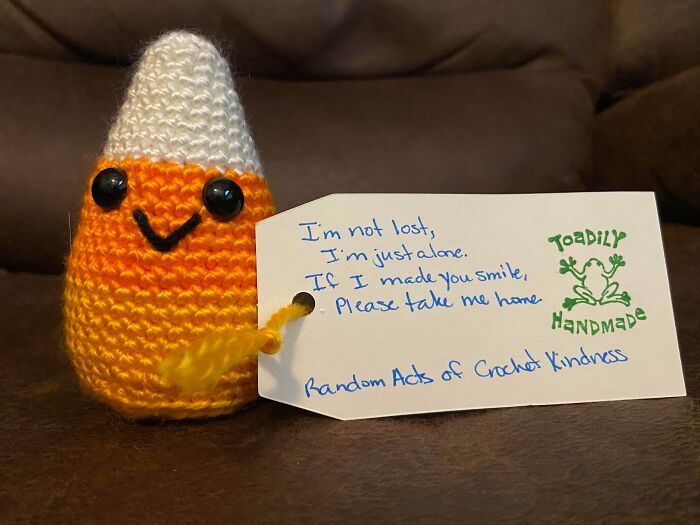 I'm not lost,
I'm just alone.
If I made you smile,
Please take me home.
TOADILY
HANDMADE
Random Acts of Crochet Kindness